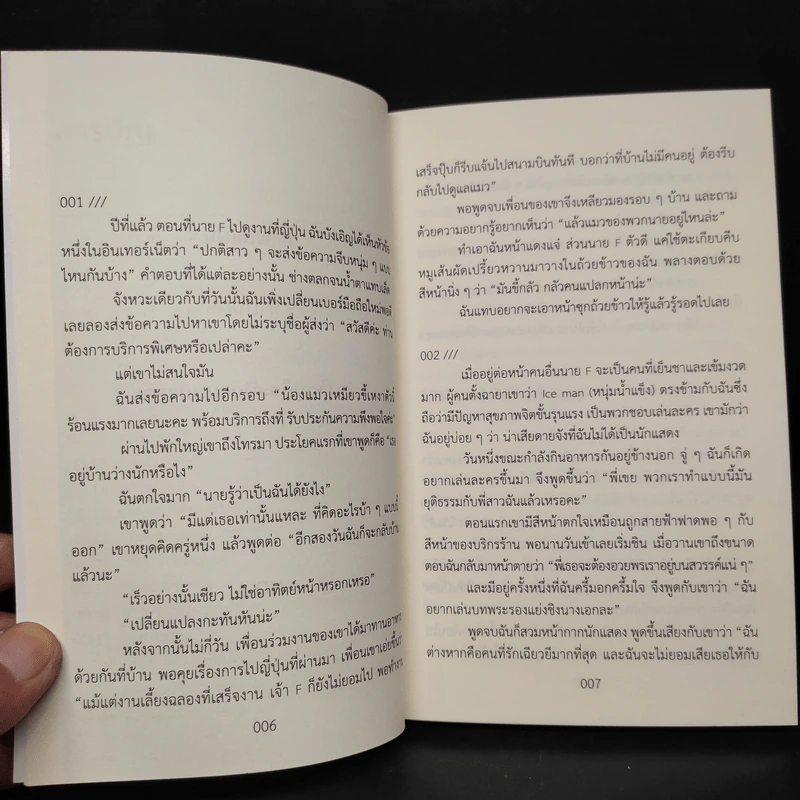 001 ///
ปีที่แล้ว ตอนที่นาย F ไปดูงานที่ญี่ปุ่น ฉันบังเอิญได้เห็นหัวข้อ
หนึ่งในอินเทอร์เน็ตว่า “ปกติสาว ๆ จะส่งข้อความจีบหนุ่ม ๆ แบบ
ไหนกันบ้าง” คำตอบที่ได้แต่ละอย่างนั้น ช่างตลกจนน้ำตาแทบเล็ด
จังหวะเดียวกับที่วันนั้นฉันเพิ่งเปลี่ยนเบอร์มือถือใหม่พอดี
เลยลองส่งข้อความไปหาเขาโดยไม่ระบุชื่อผู้ส่งว่า “สวัสดีค่ะ ท่าน
ต้องการบริการพิเศษหรือเปล่าคะ”
แต่เขาไม่สนใจมัน
ฉันส่งข้อความไปอีกรอบ “น้องแมวเหมียวขี้เหงาตัวนี้
ร้อนแรงมากเลยนะคะ พร้อมบริการถึงที่ รับประกันความพึงพอใจค่ะ”
ผ่านไปพักใหญ่เขาถึงโทรมา ประโยคแรกที่เขาพูดก็คือ “เธอ
อยู่บ้านว่างนักหรือไง”
ฉันตกใจมาก “นายรู้ว่าเป็นฉันได้ยังไง”
เขาพูดว่า “มีแต่เธอเท่านั้นแหละ ที่คิดอะไรบ้า ๆ แบบนี้
ออก” เขาหยุดคิดครู่หนึ่ง แล้วพูดต่อ “อีกสองวันฉันก็จะกลับบ้าน
แล้วนะ”
“เร็วอย่างนั้นเชียว ไม่ใช่อาทิตย์หน้าหรอกเหรอ”
“เปลี่ยนแปลงกะทันหันน่ะ”
หลังจากนั้นไม่กี่วัน เพื่อนร่วมงานของเขาได้มาทานอาหาร
ด้วยกันที่บ้าน พอคุยเรื่องการไปญี่ปุ่นที่ผ่านมา เพื่อนเขาเอ่ยขึ้นว่า
“แม้แต่งานเลี้ยงฉลองที่เสร็จงาน เจ้า F ก็ยังไม่ยอมไป พอทำงาน
006
เสร็จปุ๊บก็รีบแจ้นไปสนามบินทันที บอกว่าที่บ้านไม่มีคนอยู่ ต้องรีบ
กลับไปดูแลแมว”
พอพูดจบเพื่อนของเขาจึงเหลียวมองรอบ ๆ บ้าน และถาม
ด้วยความอยากรู้อยากเห็นว่า “แล้วแมวของพวกนายอยู่ไหนล่ะ”
ทำเอาฉันหน้าแดงแจ๋ ส่วนนาย F ตัวดี แค่ใช้ตะเกียบคีบ
หมูเส้นผัดเปรี้ยวหวานมาวางในถ้วยข้าวของฉัน พลางตอบด้วย
สีหน้านิ่ง ๆ ว่า “มันขี้กลัว กลัวคนแปลกหน้าน่ะ”
ฉันแทบอยากจะเอาหน้าซุกถ้วยข้าวให้รู้แล้วรู้รอดไปเลย
002 ///
เมื่ออยู่ต่อหน้าคนอื่นนาย F จะเป็นคนที่เย็นชาและเข้มงวด
มาก ผู้คนตั้งฉายาเขาว่า Ice man (หนุ่มน้ำแข็ง) ตรงข้ามกับฉันซึ่ง
ถือว่ามีปัญหาสุขภาพจิตขั้นรุนแรง เป็นพวกชอบเล่นละคร เขามักว่า
ฉันอยู่บ่อย ๆ ว่า น่าเสียดายจังที่ฉันไม่ได้เป็นนักแสดง
วันหนึ่งขณะกำลังกินอาหารกันอยู่ข้างนอก จู่ ๆ ฉันก็เกิด
อยากเล่นละครขึ้นมา จึงพูดขึ้นว่า “พี่เขย พวกเราทำแบบนี้มัน
ยุติธรรมกับพี่สาวฉันแล้วเหรอคะ”
ตอนแรกเขามีสีหน้าตกใจเหมือนถูกสายฟ้าฟาดพอ ๆ กับ
สีหน้าของบริกรร้าน พอนานวันเข้าเลยเริ่มชิน เมื่อวานเขาถึงขนาด
ตอบฉันกลับมาหน้าตายว่า “พี่เธอจะต้องอวยพรเราอยู่บนสวรรค์แน่ ๆ”
และมีอยู่ครั้งหนึ่งที่ฉันครึ้มอกครึ้มใจ จึงพูดกับเขาว่า “ฉัน
อยากเล่นบทพระรองแย่งชิงนางเอกละ”
พูดจบฉันก็สวมหน้ากากนักแสดง พูดขึ้นเสียงกับเขาว่า “ฉัน
ต่างหากคือคนที่รักเฉียวยีมากที่สุด และฉันจะไม่ยอมเสียเธอให้กับ
007